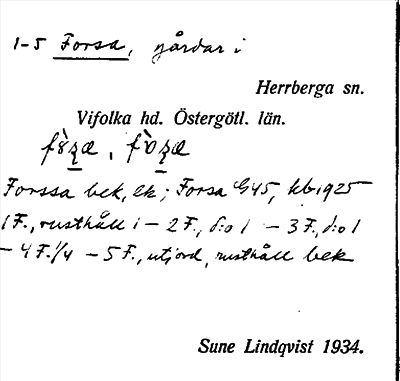 1-5 Forsa, gårdar i
Herrberga sn.
Vifolka hd. Östergötl. län.
Forssa bek, ek; Forsa G45, kb 1925
1 F., rusthåll 1 – 2 F., d:o 1 – 3 F., d:o 1
– 4 F. 1/4 – 5 F., utjord, rusthåll bek
Sune Lindqvist 1934.